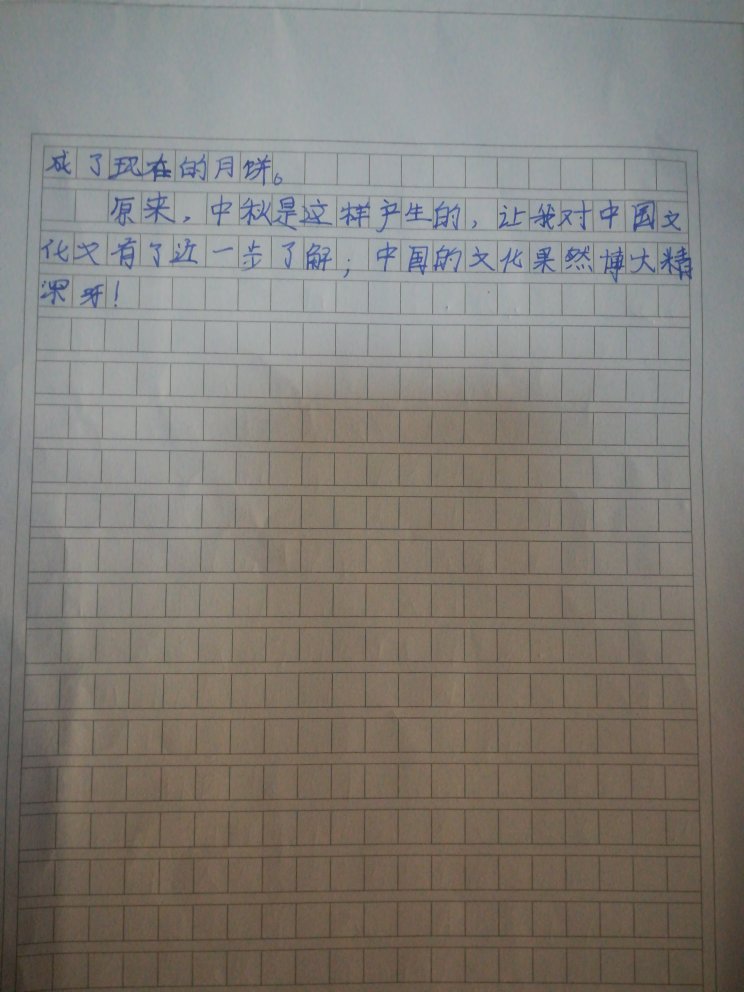 成了现在的月饼。
原来，中秋是这样产生的，让我对中国文
化又有了近一步了解；中国的文化果然博大精
深呀！